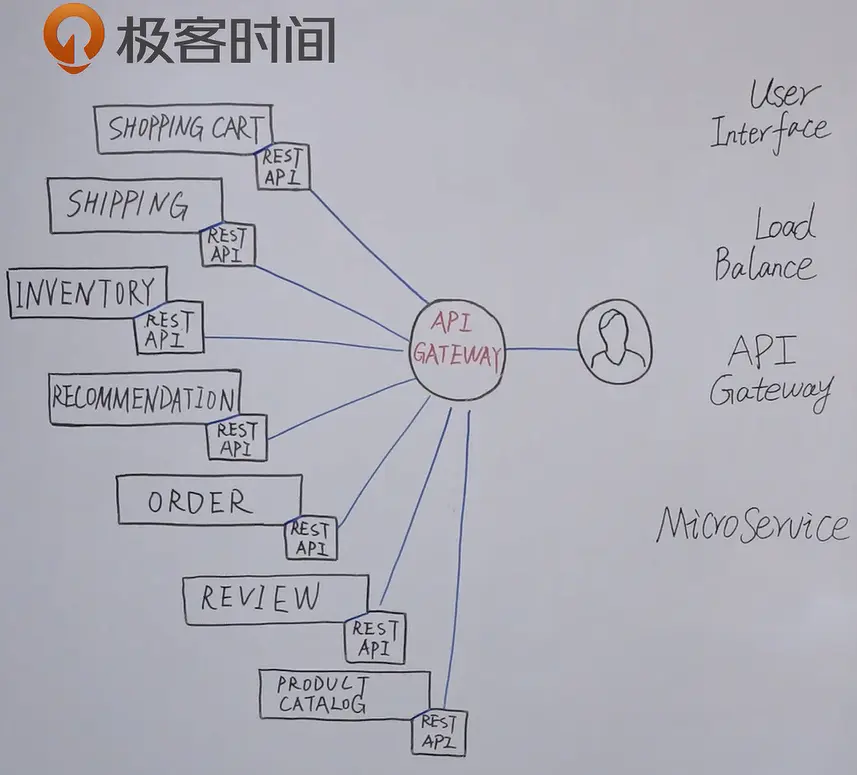 极客时间
SHOPPING CART
REST
API
SHIPPING
REST
API
INVENTORY
REST
API
RECOMMENDATION
REST
API
ORDER
REST
API
REVIEW
REST
API
PRODUCT
CATALOG
REST
API
API
GATEWAY
User
Interface
Load
Balance
API
Gateway
MicroService